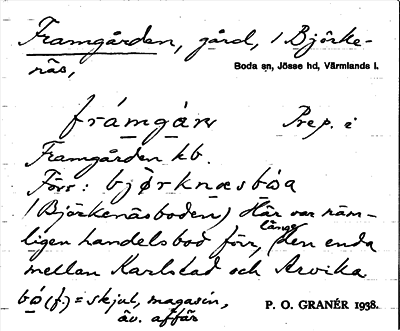 Framgården, gård, / Björke-
näs,
Boda sn, Jösse hd, Värmlands l.
frámgàṇ Prep. i
Framgården kb.
Förr: bjørknæsbóa
/ Björkenäsboden) Här var näm-
ligen handelsbod förr, länge (den enda
mellan Karlstad och Arvika
bó (f.) = skjul, magasin,
äv. affär
P. O. GRANÉR 1938.